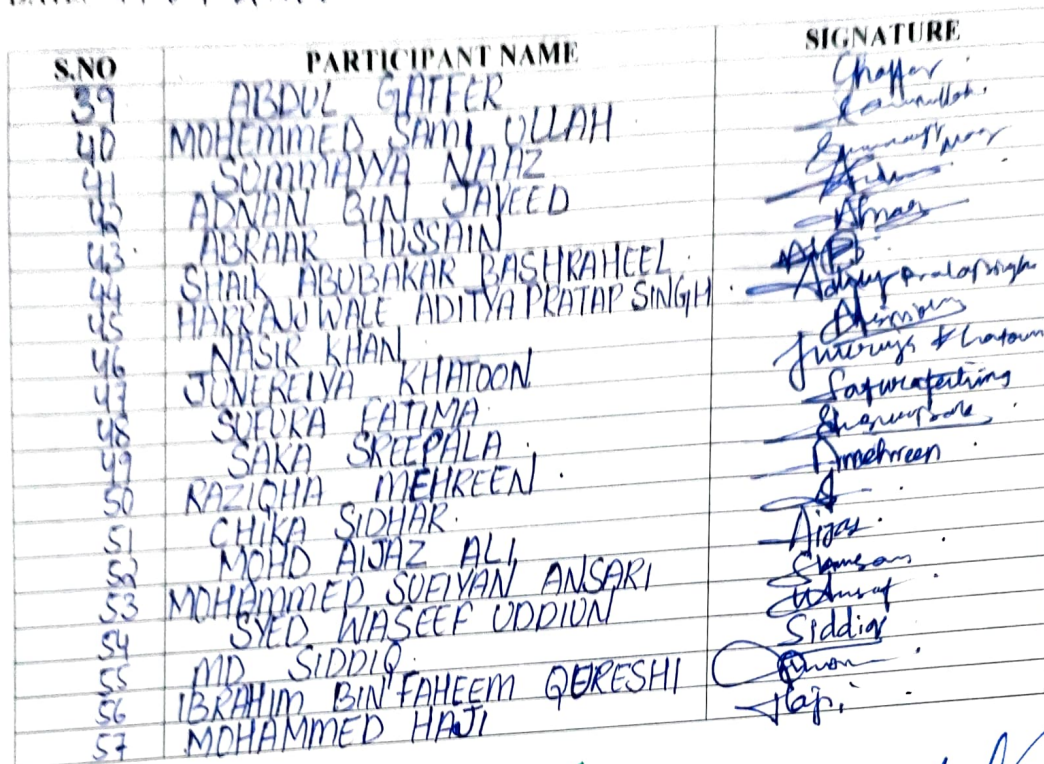 S.NO PARTICIPANT NAME SIGNATURE
39 ABDUL GAFFER Ghaffar
40 MOHEMMED SAMI ULLAH
41 SUMMAYYA NAAZ
42 ADNAN BIN JAVEED
43 ABRAAR HUSSAIN
44 SHAIK ABUBAKAR BASHRAHEEL
45 HARKAJUWALE ADITYA PRATAP SINGH
46 NASIR KHAN
47 JUNEREIYA KHATOON
48 SUFURA FATIMA
49 SAKA SREEPALA
50 RAZIQHA MEHREEN
51 CHIKA SIDHAR
52 MOHD AIJAZ ALI Aijaz
53 MOHAMMED SUFIYAN ANSARI
54 SYED WASEEF UDDIUN
55 MD SIDDIQ Siddiq
56 IBRAHIM BIN FAHEEM QURESHI
57 MOHAMMED HAJI Haji